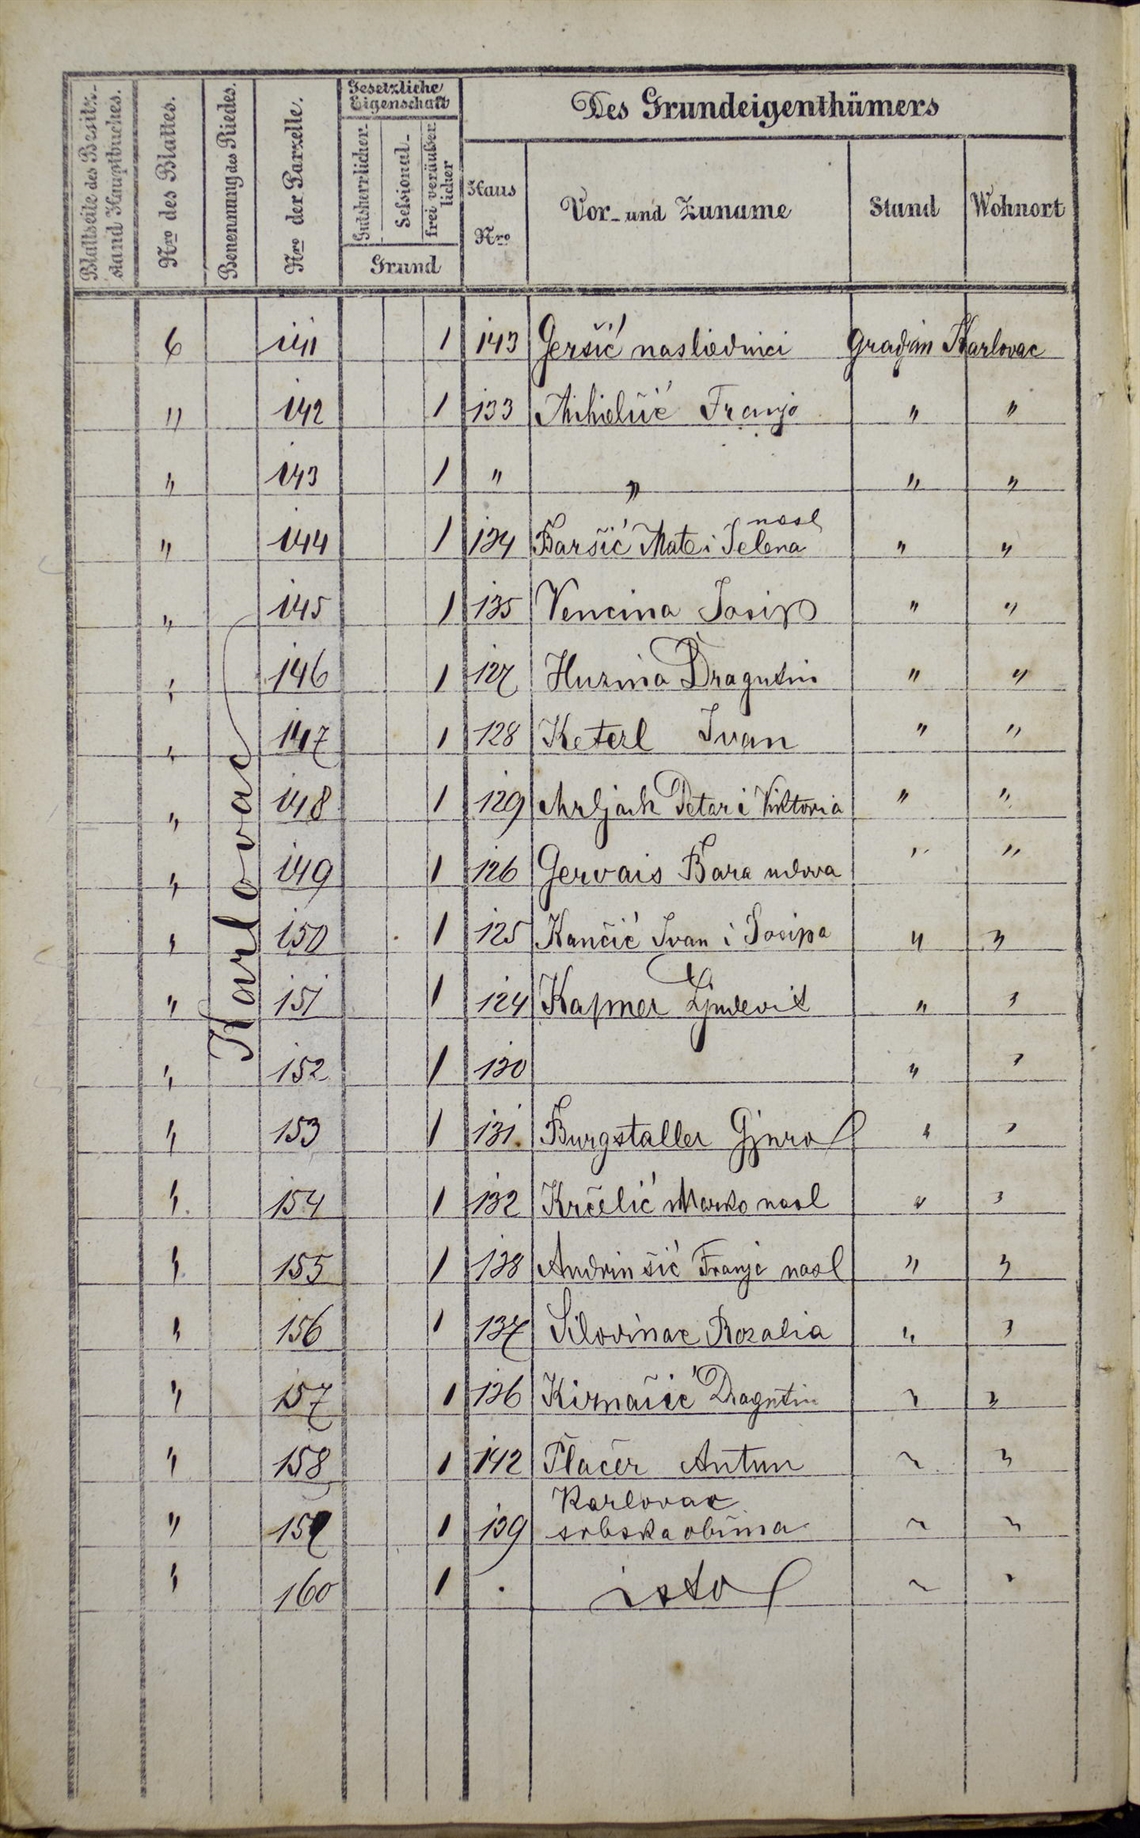 Des Grundeigenthümers
Blattseite des Besitz-
stand Hauptbuches.
Nro des Blattes.
Benennung des Riedes.
Nro der Parzelle.
Gesetzliche
Eigenschaft
Gutsherrlicher
Sessional-
frei veräußer
licher
Grund
Haus
Nro
Vor- und Zuname
Stand
Wohnort
Karlovac
6 141 1 143 Geršić nasliednici Gradjan Karlovac
" 142 1 133 Franjo " "
" 143 1 " " " "
nasl
" 144 1 134 Baršić Mate i Jelena " "
" 145 1 135 Vencina Josip " "
" 146 1 127 Dragutin " "
" 147 1 128 Keterl Ivan " "
" 148 1 129 Mrljak Petar i Viktoria " "
" 149 1 126 Gervais Bara udova " "
" 150 1 125 Kančić Ivan i Josipa " "
" 151 1 124 Ljudevit " "
" 152 1 130 " "
" 153 1 131 Burgstaller Gjuro " "
" 154 1 132 Krčelić Marko nasl " "
" 155 1 138 Franje nasl " "
" 156 1 137 Silovinac Rozalia " "
" 157 1 136 Dragutin " "
" 158 1 142 Antun " "
Karlovac
" 159 1 139 srbska obćina " "
" 160 1 . isto " "